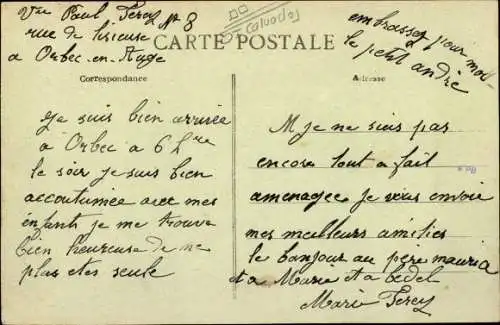 Vve Paul Ferey N° 8
rue de lisieuse
a Orbec-en-Auge
(Calvados)
embrassez pour moi
le petit andrè
CARTE POSTALE
Correspondance
Adresse
je suis bien arrivée
à Orbec a 6 hre
le soir je suis bien
accoutumée avec mes
enfants je me trouve
bien heureuse de ne
plus etes seule
M je ne suis pas
encore tout a fait
amenagee je vous envoie
mes meilleurs amities
le bonjour au père mauria
et a Marie et a bedel
Marie Ferey